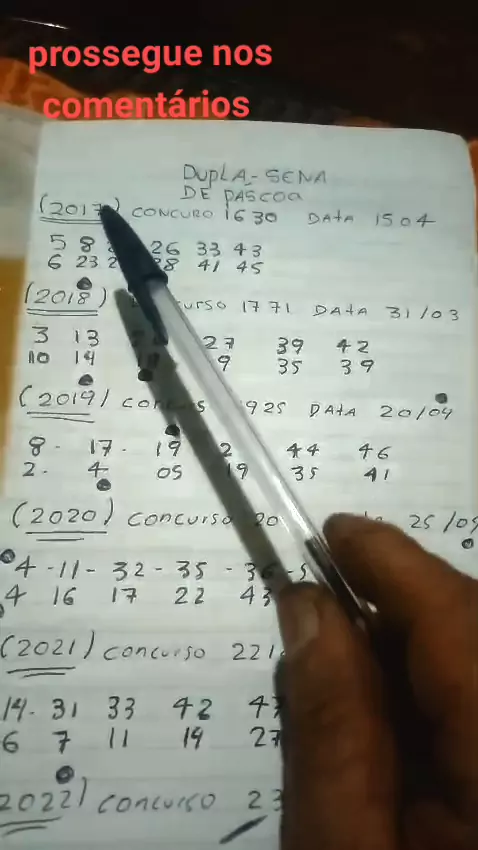 prossegue nos
comentários
DUPLA-SENA
DE PASCOA
(2017) CONCURO 1630 DATA 1504
5 8 26 33 43
6 23 41 45
(2018) 1771 DATA 31/03
3 13 27 39 42
10 14 35 39
(2019) DATA 20/04
8 - 17 - 19 44 46
2 - 4 05 19 35 41
(2020) CONCURSO
4 - 11 - 32 - 35 -
4 16 17 22 43
(2021) concurso
14 - 31 33 42
6 7 11 14 27
2022) CONCURSO